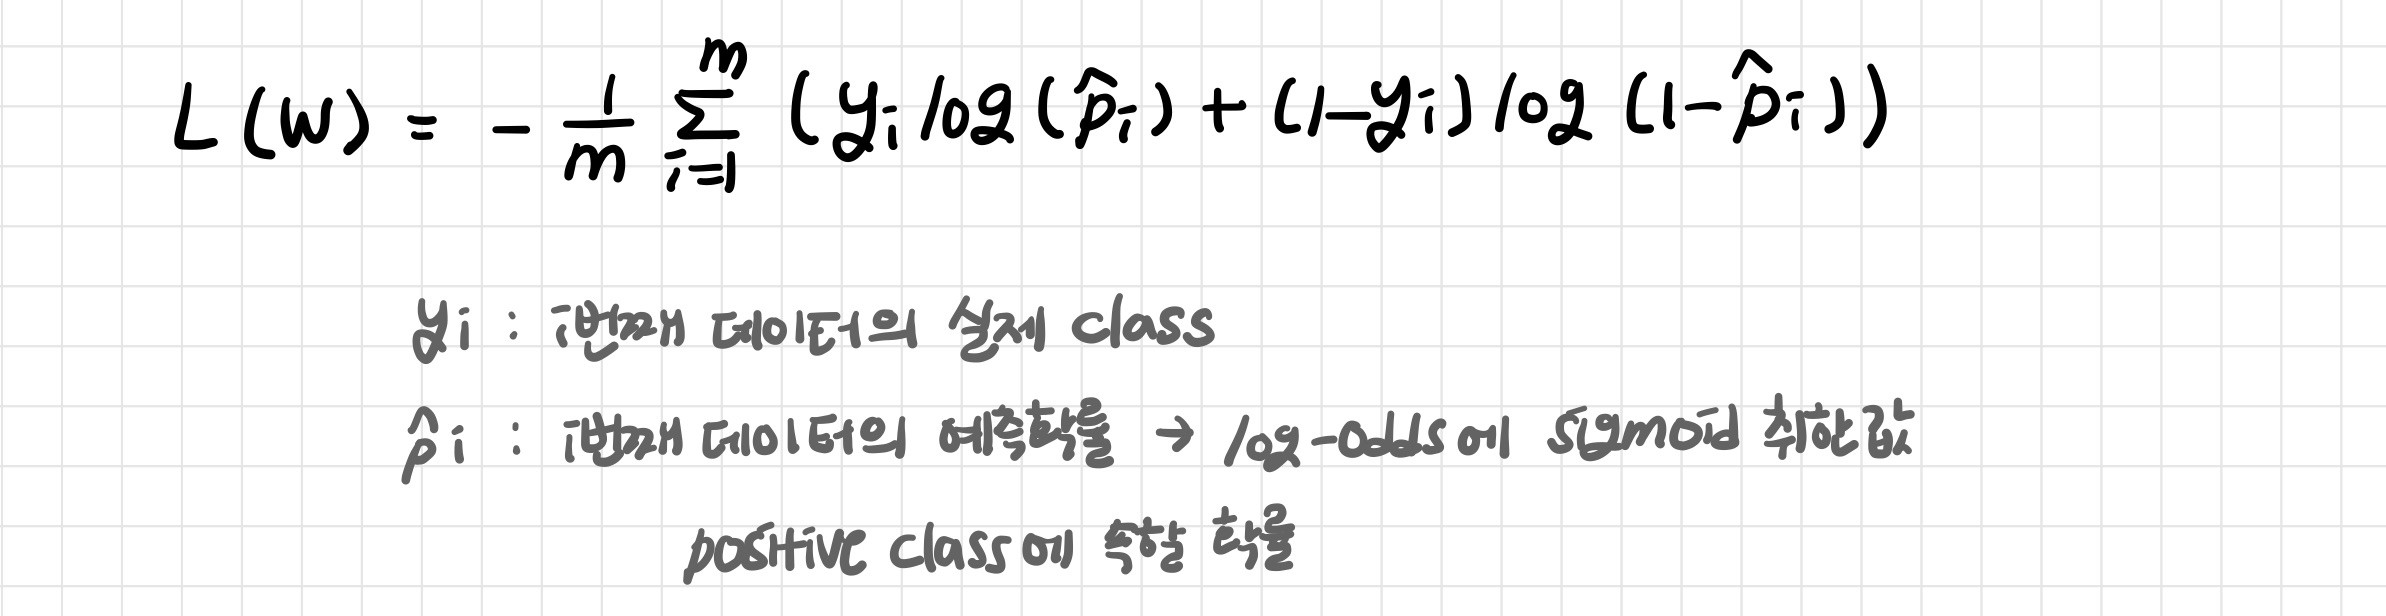 L(w) = - 1/m Σ_{i=1}^{m} (y_i log(p̂_i) + (1-y_i) log(1-p̂_i))
y_i : i번째 데이터의 실제 class
p̂_i : i번째 데이터의 예측확률 → log-odds에 sigmoid 취한값
positive class에 속할 확률